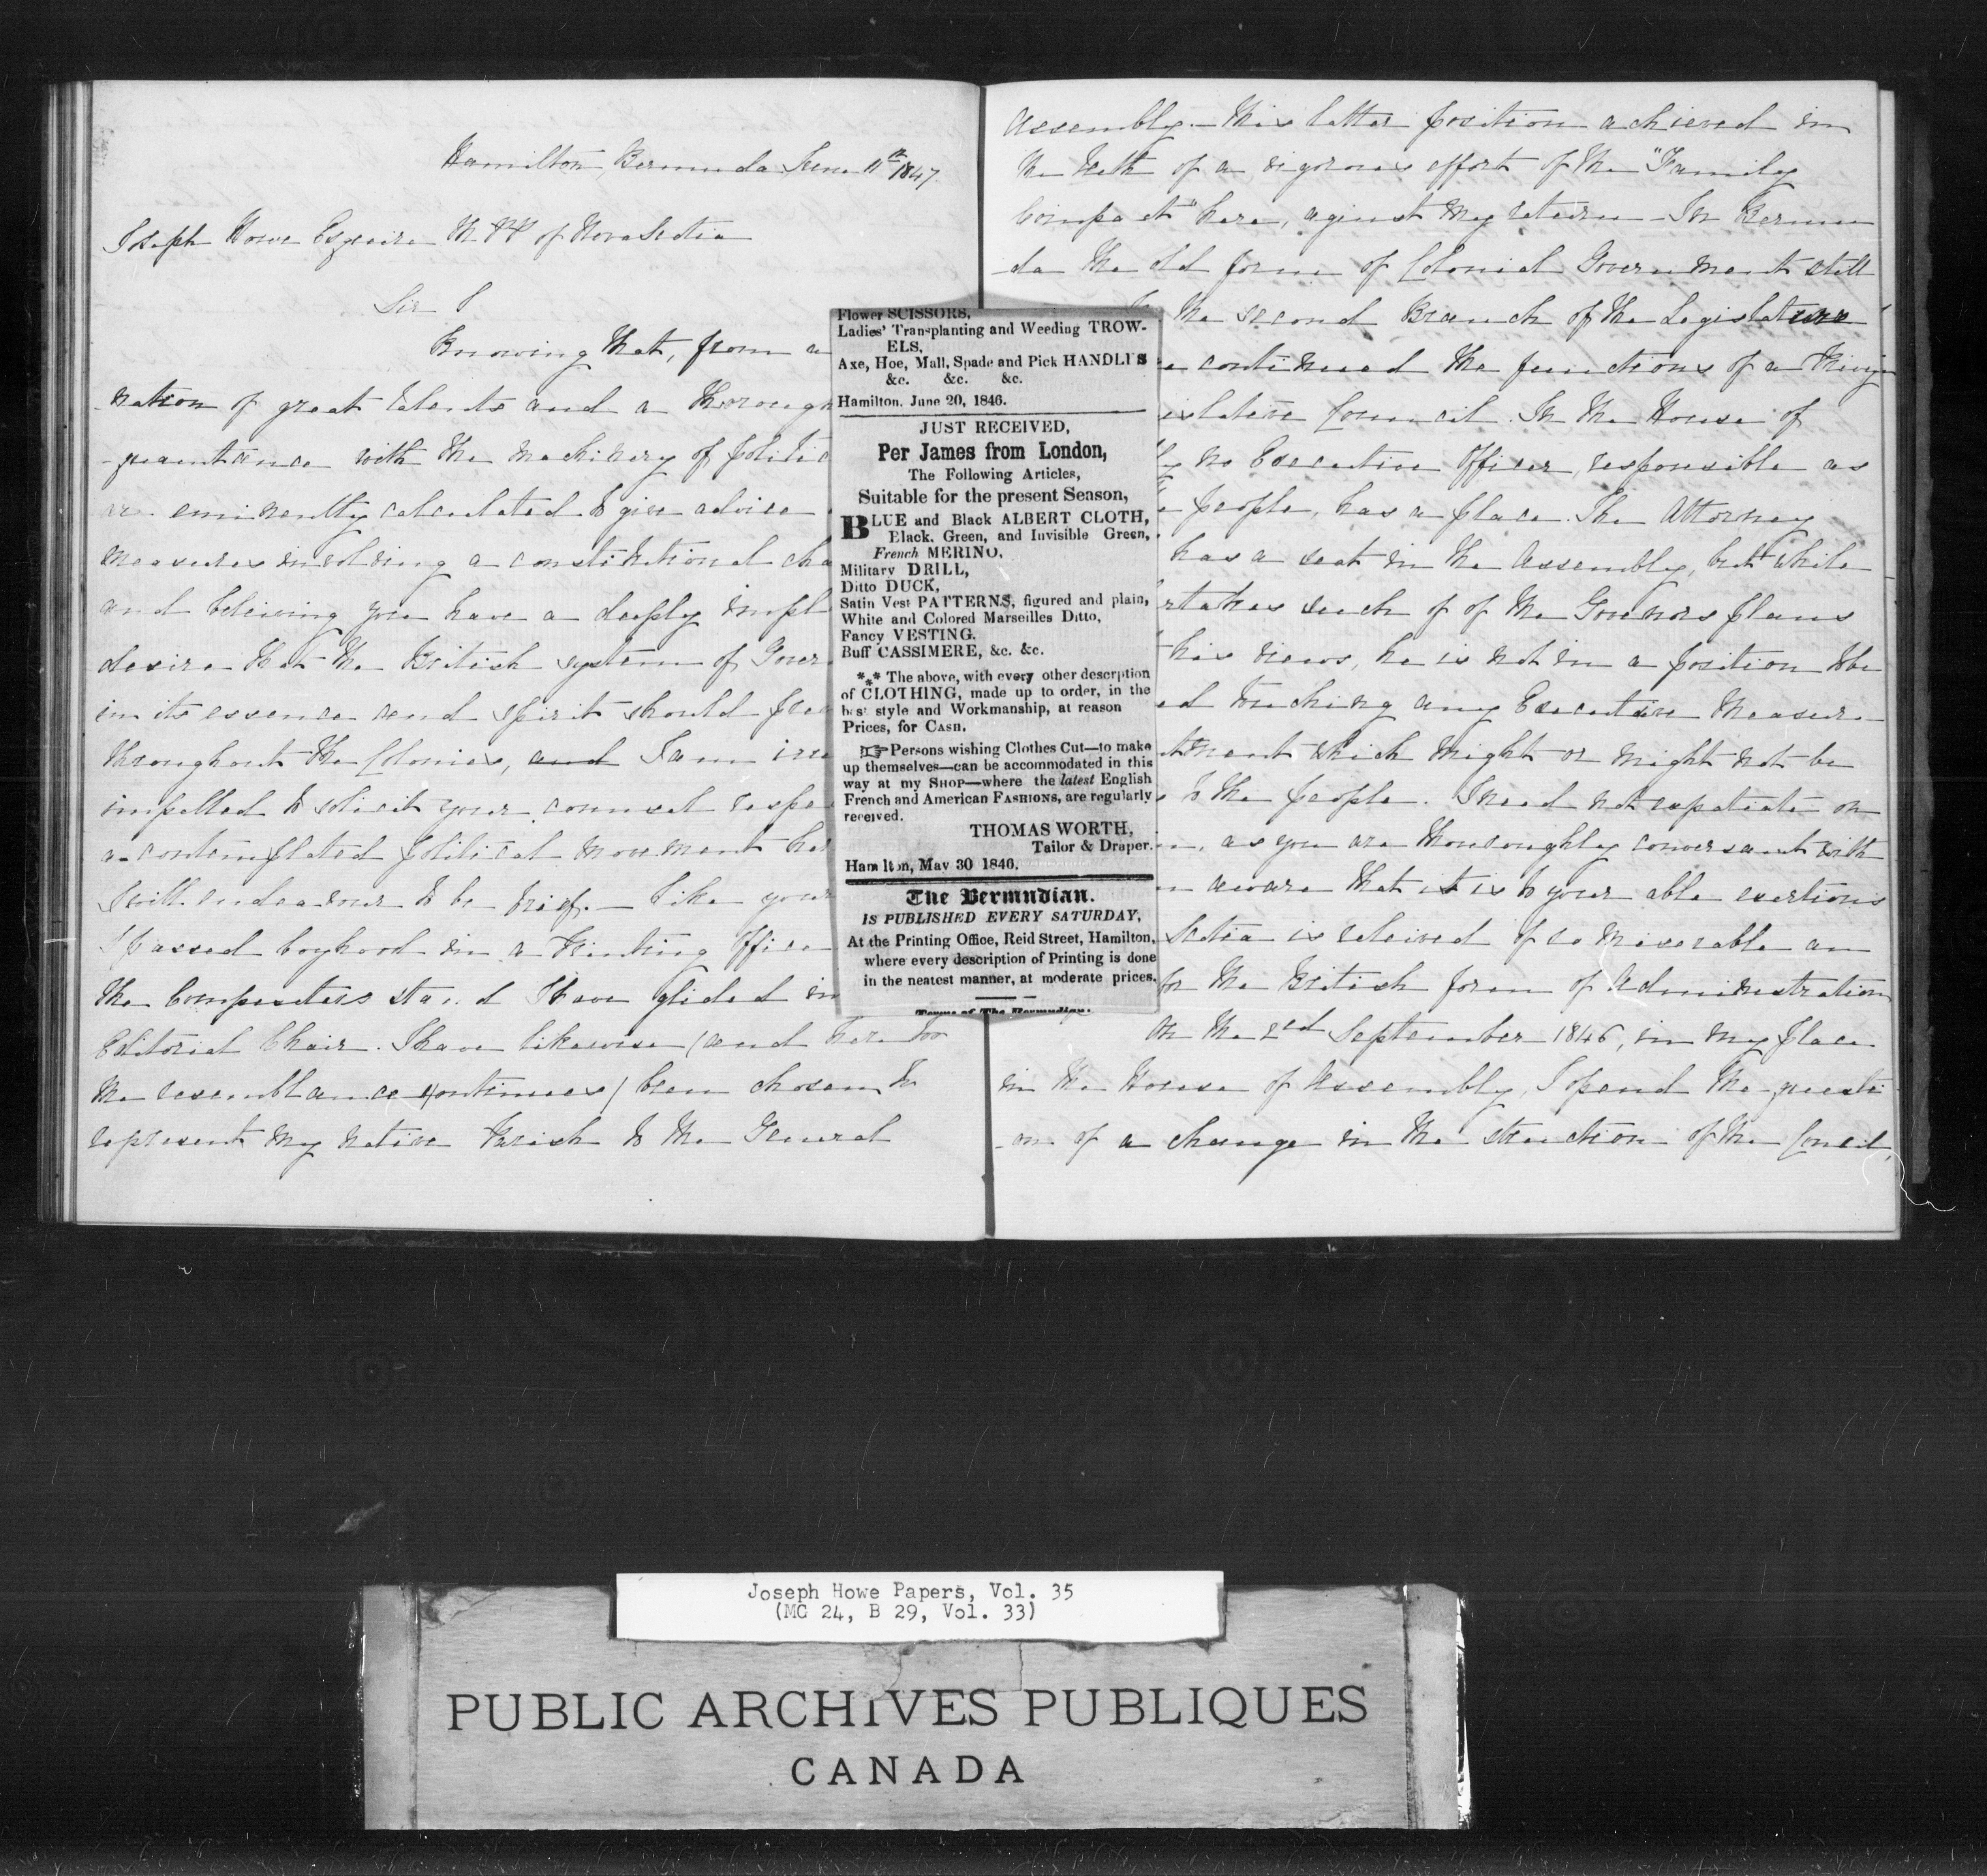 Hamilton, Bermuda June 11th 1847.
Joseph Howe Esquire M.P.P of Nova Scotia
Sir
Knowing that, from a
-nation of great talents and a thorough
-quaintance with the machinery of politic
are eminently calculated to give advice
measures involving a constitutional cha
and believing you have a deeply impl
desire that the British system of Gover
in its essence and spirit should
throughout the Colonies, and I am irre
impelled to solicit your counsel respe
a contemplated political movement her
I will endeavour to be brief. — Like your
I passed boyhood in a Printing Office
the Compositors stand I have glided in
Editorial Chair. I have likewise (and here too
the resemblance continues) been chosen to
represent my native Parish to the General
Flower SCISSORS,
Ladies' Transplanting and Weeding TROW-
ELS,
Axe, Hoe, Mall, Spade and Pick HANDLES
&c. &c. &c.
Hamilton, June 20, 1846.
JUST RECEIVED,
Per James from London,
The Following Articles,
Suitable for the present Season,
BLUE and Black ALBERT CLOTH,
Black, Green, and Invisible Green,
French MERINO,
Military DRILL,
Ditto DUCK,
Satin Vest PATTERNS, figured and plain,
White and Colored Marseilles Ditto,
Fancy VESTING,
Buff CASSIMERE, &c. &c.
*** The above, with every other descrption
of CLOTHING, made up to order, in the
best style and Workmanship, at reason
Prices, for CASH.
☞ Persons wishing Clothes Cut—to make
up themselves—can be accommodated in this
way at my SHOP—where the latest English
French and American FASHIONS, are regularly
received.
THOMAS WORTH,
Tailor & Draper.
Hamilton, May 30 1846.
The Bermudian.
IS PUBLISHED EVERY SATURDAY,
At the Printing Office, Reid Street, Hamilton,
where every description of Printing is done
in the neatest manner, at moderate prices.
Terms of The Bermudian:
Assembly. — This latter position achieved in
the teeth of a vigorous effort of the "Family
Compact" here, aginst my return — In Bermu
-da the old form of Colonial Government still
the second Branch of the Legislature
continued the functions of a Privy
islative Council. In the House of
no Executive Officer, responsible as
people, has a place. The Attorney
has a seat in the Assembly, but while
rtakes such of of the Govenors plans
his views, he is not in a position to be
ed touching any Executive measure
ntment which might or might not be
to the people. I need not expatiate on
as you are thouroughly conversant with
aware that it is to your able exertions
Scotia is releived of so miserable an
for the British form of Administration
On the 2nd September 1846, in my place
in the House of Assembly, I opend the questi
-on of a change in the struction of the Concil,
Joseph Howe Papers, Vol. 35
(MG 24, B 29, Vol. 33)
PUBLIC ARCHIVES PUBLIQUES
CANADA